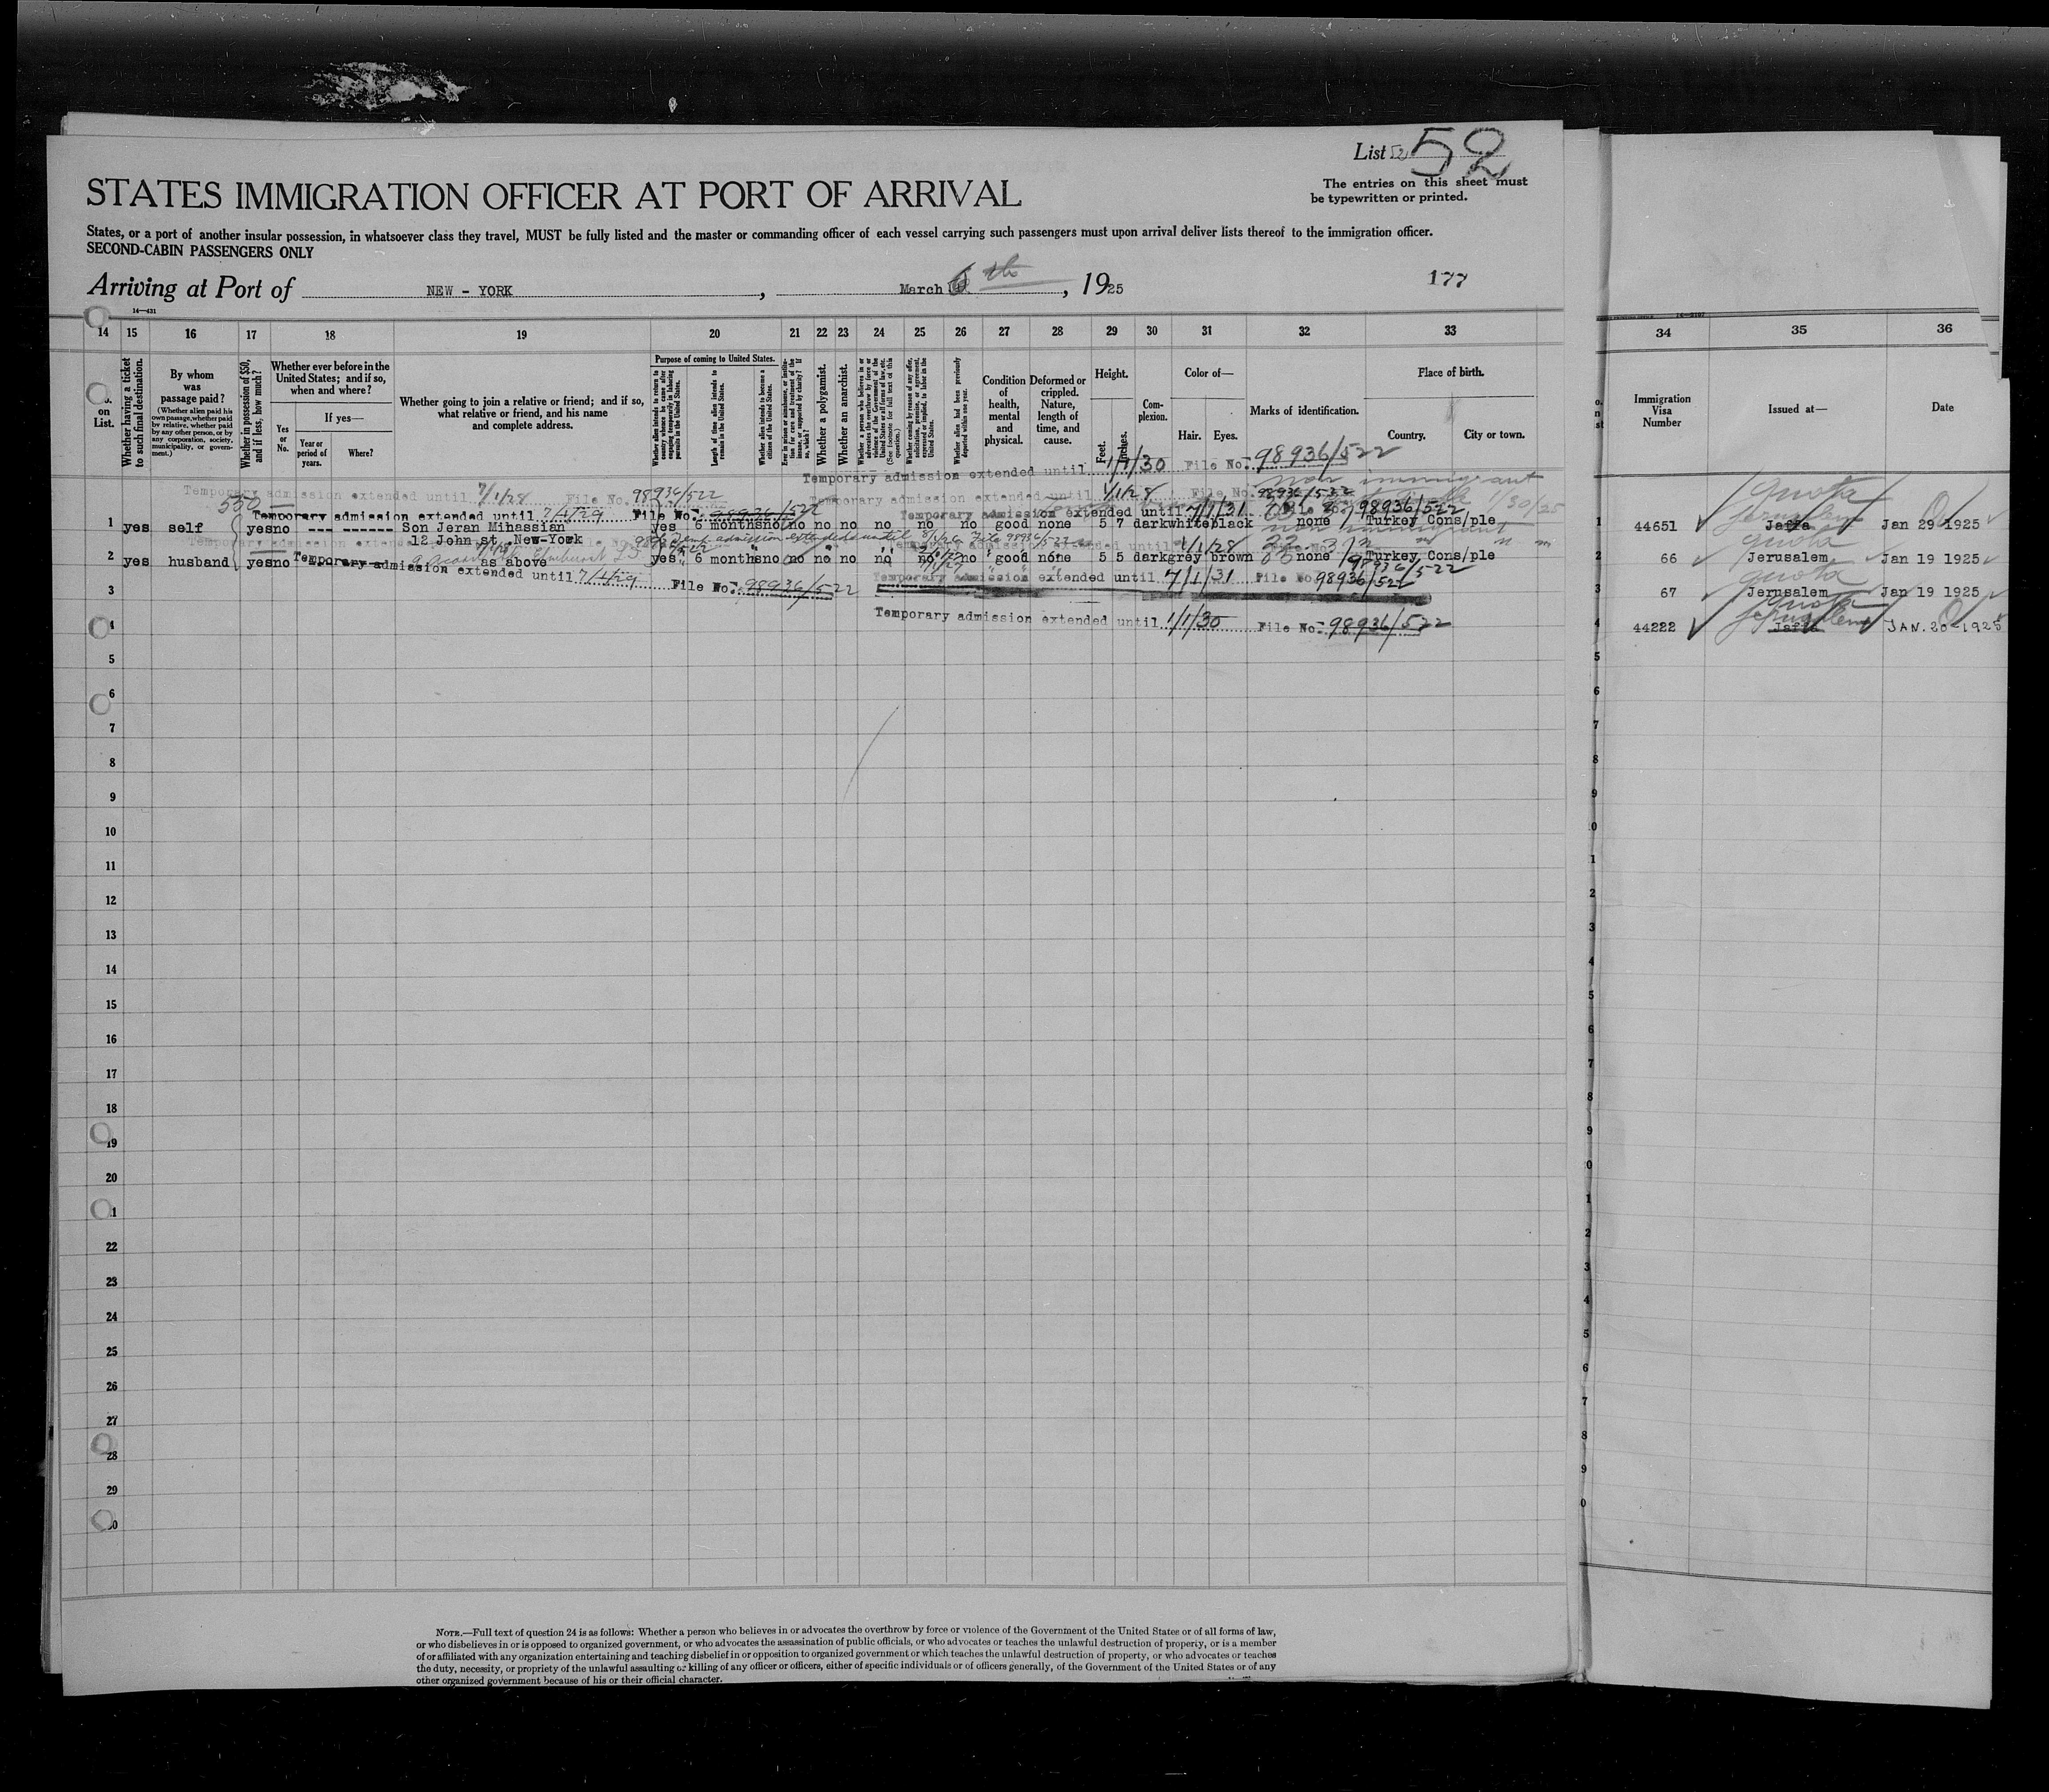 List 52 52
The entries on this sheet must
be typewritten or printed.
STATES IMMIGRATION OFFICER AT PORT OF ARRIVAL
States, or a port of another insular possession, in whatsoever class they travel, MUST be fully listed and the master or commanding officer of each vessel carrying such passengers must upon arrival deliver lists thereof to the immigration officer.
SECOND-CABIN PASSENGERS ONLY
Arriving at Port of NEW - YORK, March 6th, 1925
177
14—431
14 15 16 17 18 19 20 21 22 23 24 25 26 27 28 29 30 31 32 33 34 35 36
on List.
Whether having a ticket to such final destination.
By whom was passage paid?
(Whether alien paid his own passage, whether paid by relative, whether paid by any other person, or by any corporation, society, municipality, or government.)
Whether in possession of $50, and if less, how much?
Whether ever before in the United States; and if so, when and where?
Yes or No.
If yes—
Year or period of years.
Where?
Whether going to join a relative or friend; and if so, what relative or friend, and his name and complete address.
Purpose of coming to United States.
Whether alien intends to return to country whence he came after engaging temporarily in laboring pursuits in the United States.
Length of time alien intends to remain in the United States.
Whether alien intends to become a citizen of the United States.
Ever in prison or almshouse, or institution for care and treatment of the insane, or supported by charity? If so, which?
Whether a polygamist.
Whether an anarchist.
Whether a person who believes in or advocates the overthrow by force or violence of the Government of the United States or all forms of law, etc. (See footnote for full text of this question.)
Whether coming by reason of any offer, solicitation, promise, or agreement, expressed or implied, to labor in the United States.
Whether alien had been previously deported within one year.
Condition of health, mental and physical.
Deformed or crippled. Nature, length of time, and cause.
Height.
Feet. Inches.
Complexion.
Color of—
Hair. Eyes.
Marks of identification.
Place of birth.
Country. City or town.
Immigration Visa Number
Issued at—
Date
Temporary admission extended until 1/1/30 File No. 98936/522
non immigrant
Temporary admission extended until 7/1/28 File No. 98936/522
Temporary admission extended until 1/1/28 File No. 98936/522
550
Temporary admission extended until 7/1/29 File No. 98936/522
Temporary admission extended until 7/1/31 File No. 98936/522
1/30/25
1 yes self yes no --- ------ Son Jeran Mihassian yes 6 months no no no no no no no good none 5 7 dark white black none Turkey Cons/ple
12 John st. New-York
Temp admission extended until File 98936/522
non immigrant
1/1/28
2 yes husband yes no as above yes 6 months no no no no no no no good none 5 5 dark grey brown none Turkey Cons/ple
Temporary admission extended until 7/1/29 File No. 98936/522
Temporary Admission extended until 7/1/31 File No. 98936/522
Temporary admission extended until 1/1/30 File No. 98936/522
3
4
5
6
7
8
9
10
11
12
13
14
15
16
17
18
19
20
1
22
23
24
25
26
27
28
29
30
quota
Jerusalem
1 44651 Jaffa Jan 29 1925
quota
2 66 Jerusalem Jan 19 1925
quota
3 67 Jerusalem Jan 19 1925
quota
Jerusalem
4 44222 Jaffa JAN. 20 1925
NOTE.—Full text of question 24 is as follows: Whether a person who believes in or advocates the overthrow by force or violence of the Government of the United States or of all forms of law,
or who disbelieves in or is opposed to organized government, or who advocates the assassination of public officials, or who advocates or teaches the unlawful destruction of property, or is a member
of or affiliated with any organization entertaining and teaching disbelief in or opposition to organized government or which teaches the unlawful destruction of property, or who advocates or teaches
the duty, necessity, or propriety of the unlawful assaulting or killing of any officer or officers, either of specific individuals or of officers generally, of the Government of the United States or of any
other organized government because of his or their official character.